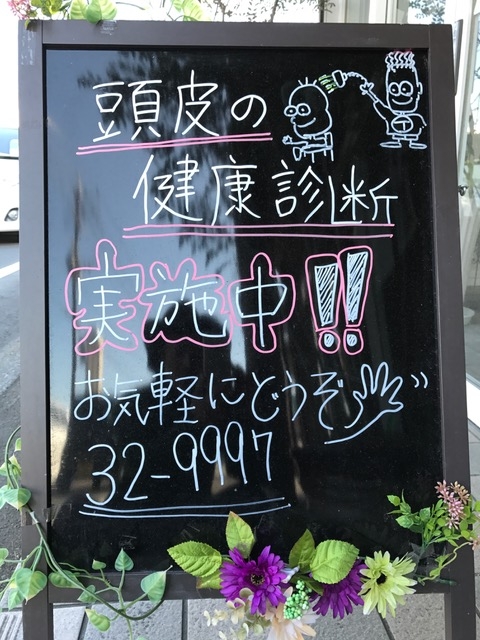 頭皮の
健康診断
実施中!!
お気軽にどうぞ
32-9997